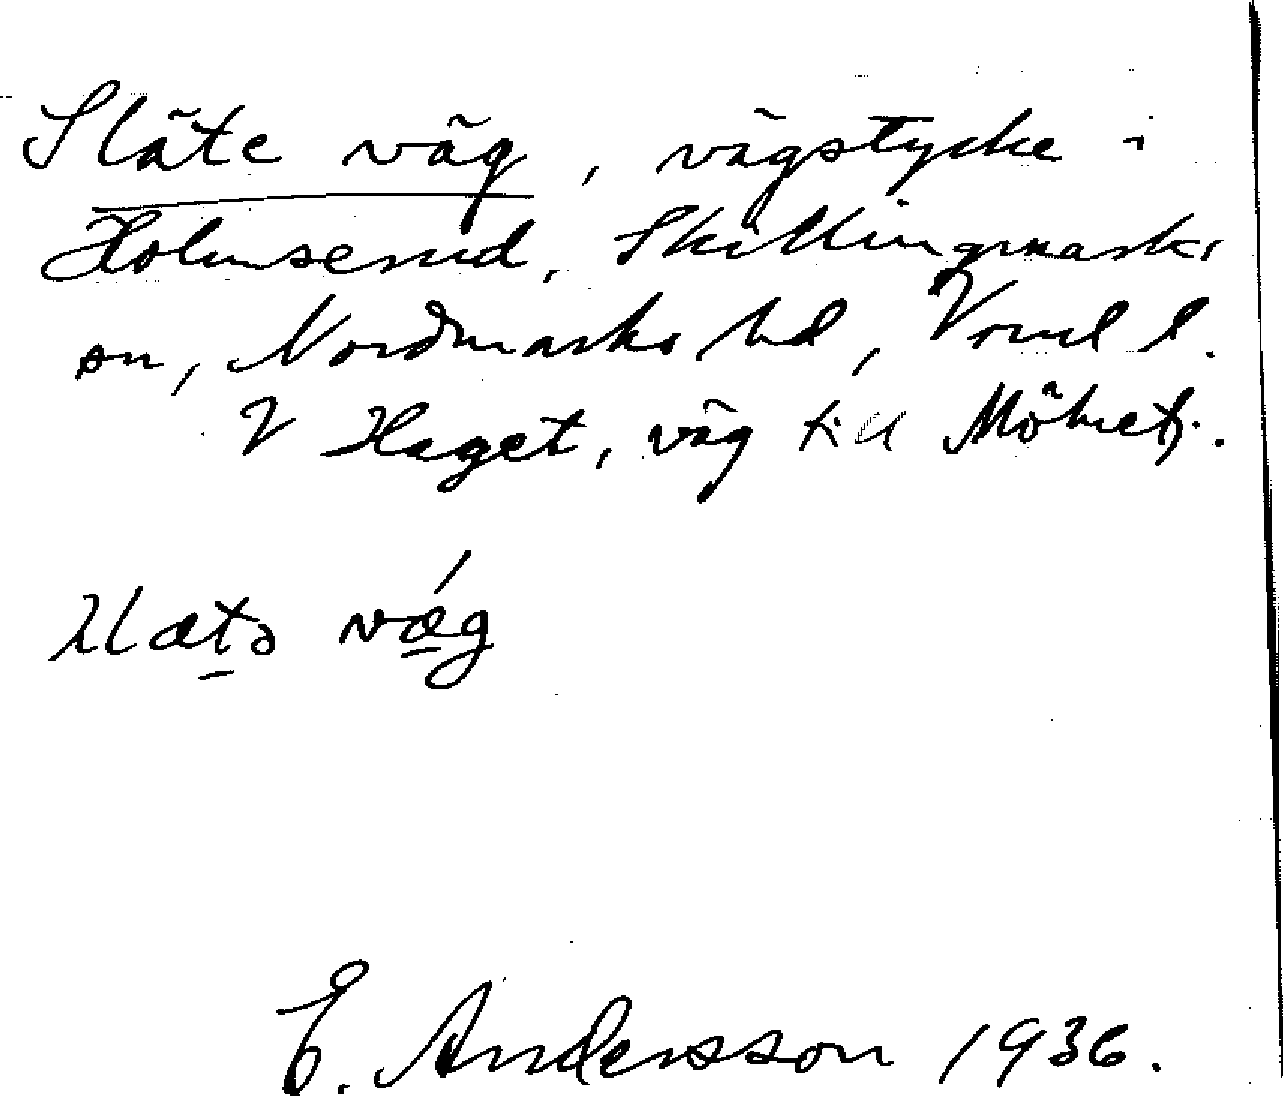 Släte väg, vägstycke i
Holmserud, Skillingmarks
sn, Nordmarks hd, Vrml l.
V Haget, väg till
væg
E. Andersson 1936.